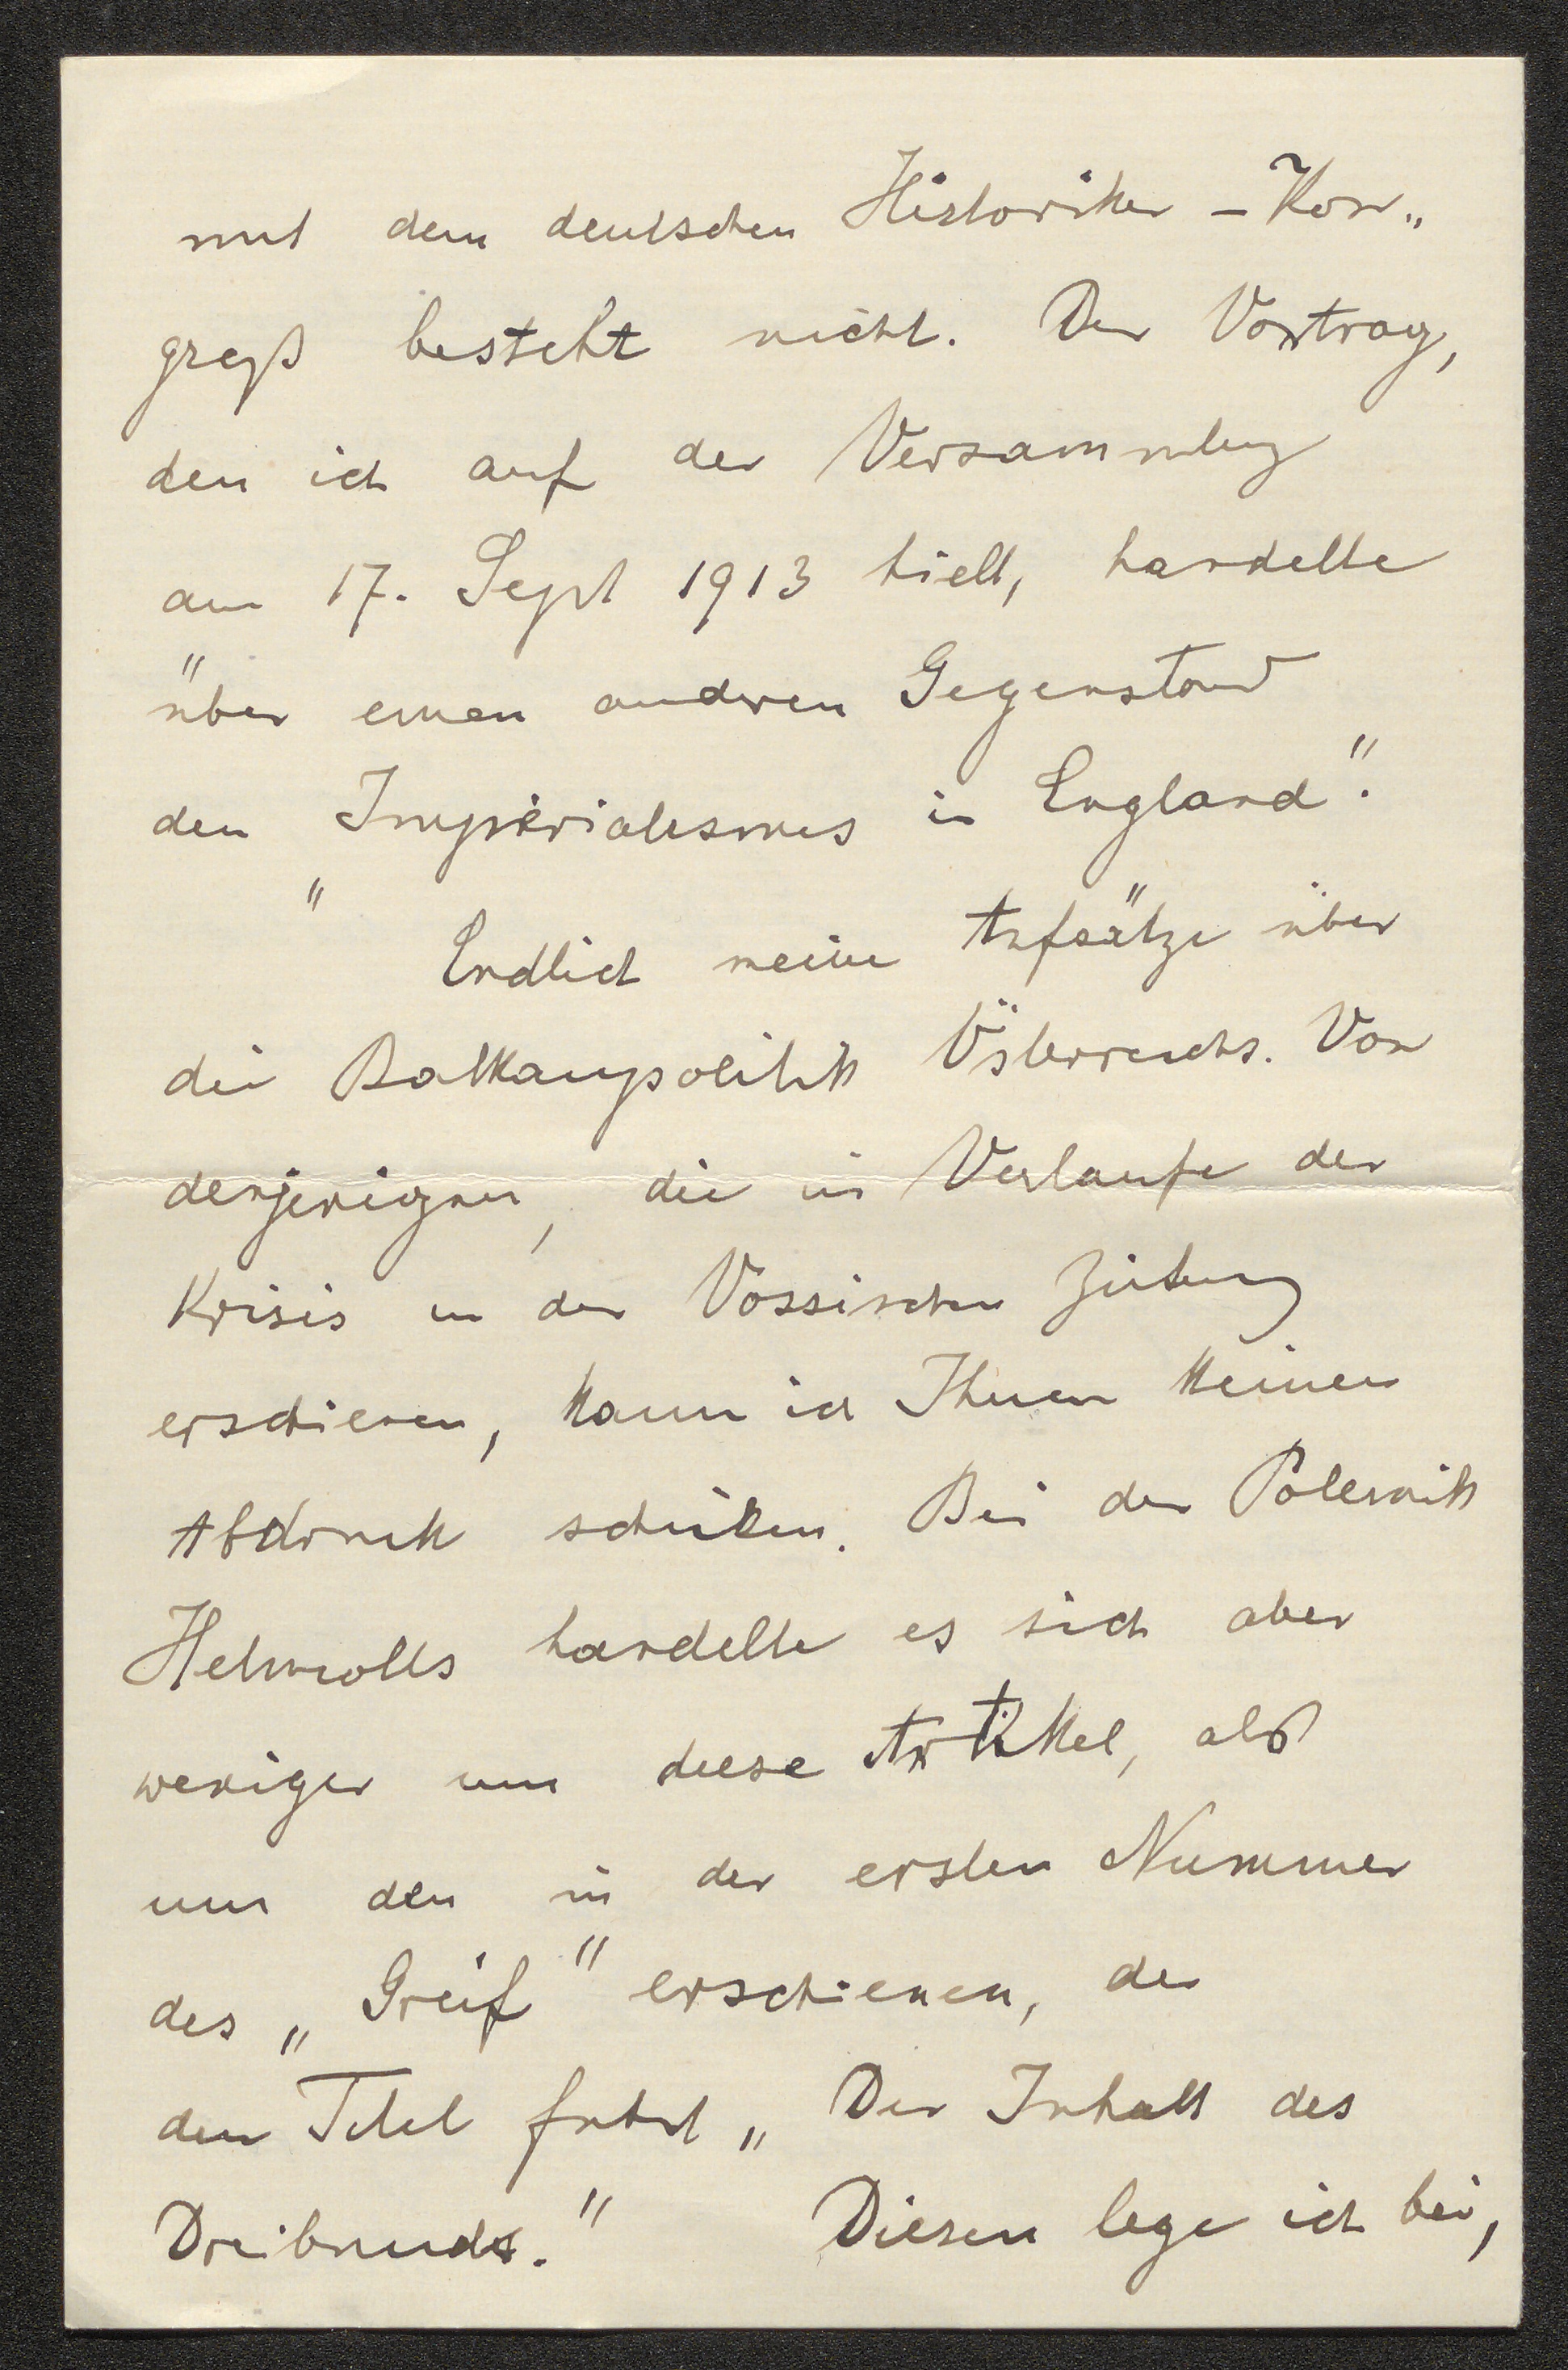 mit dem deutschen Historiker-Kon„
greß besteht nicht. Der Vortrag,
den ich auf der Versammlung
am 17. Sept 1913 hielt, handelte
über einen anderen Gegenstand
den Imperialismus in England".
" Endlich meine Aufsätze über
die Balkanpolitik Österreichs. Von
denjenigen, die im Verlaufe der
Krisis in der Vossischen Zeitung
erschienen, kann ich Ihnen keinen
Abdruck schicken. Bei der Polemik
Helmolts handelte es sich aber
weniger um diese Artikkel, als
um den in der ersten Nummer
des „Greif" erschienen, der
den Titel fuhrt „Der Inhalt des
Dreibunds." Diesen lege ich bei,